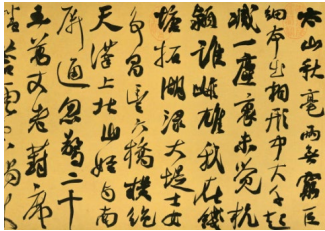 太山秋毫兩無窮巨
細本出相形中大千起
滅一塵裏未覺杭
潁誰雌雄我在錢
塘拓湖淥大堤士女
爭昌豐六橋橫絕
天漢上北山始與南
屏通忽驚二十
五萬丈老葑席